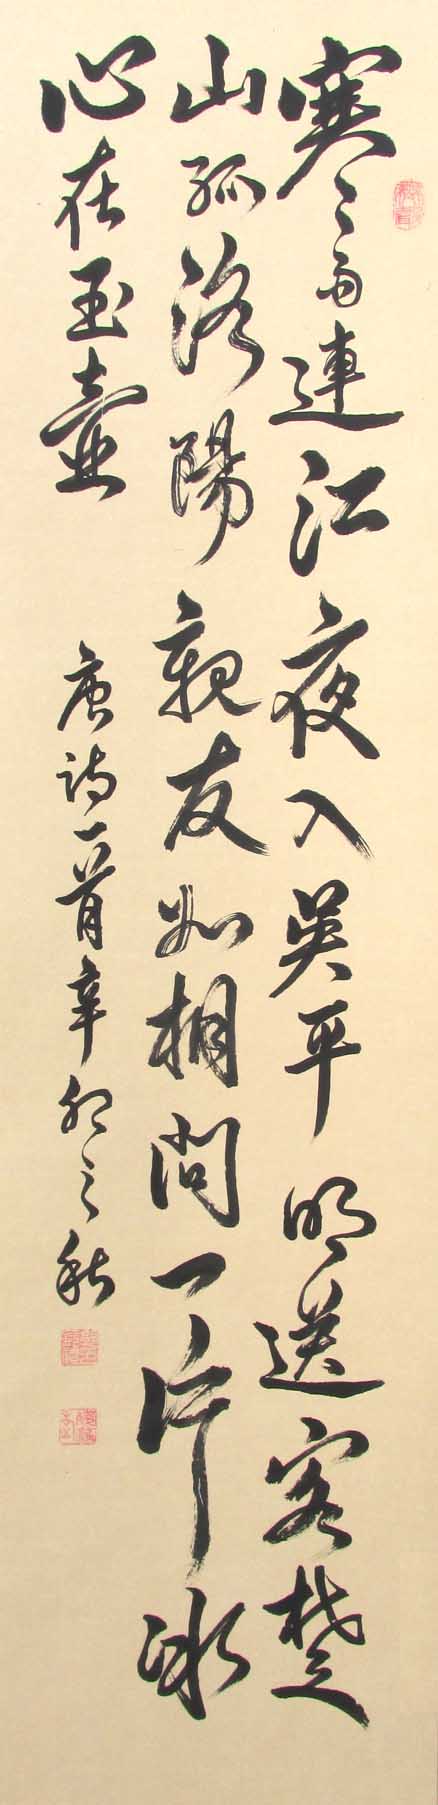 寒雨連江夜入吳平明送客楚
山孤洛陽親友如相問一片冰
心在玉壺
唐詩一首辛卯之秋